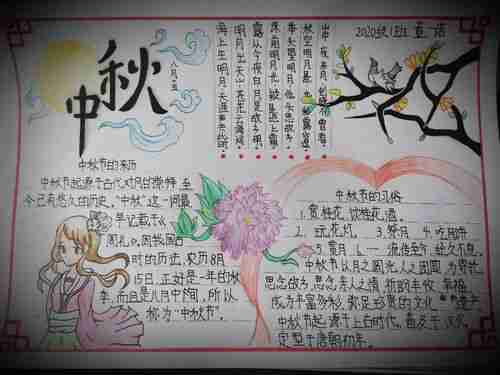 中秋
八月·十五
2020级1班 董诺
床前明月光 疑是地上霜
举头望明月 低头思故乡
露从今夜白 月是故乡明
明月出天山 苍茫云海间
海上生明月 天涯共此时
中秋节的来历
中秋节起源于古代对月的崇拜,至
今已有悠久的历史,"中秋"这一词最
早记载于《
周礼》。因我国历
时的历法,农历8月
15日,正好是一年的秋
季,而且是八月中间,所以
称为"中秋节"。
中秋节的习俗
1.赏桂花、饮桂花酒
2.玩花灯 3.祭月 4.吃月饼
5.赏月 6.一
流传至今,经久不息。
中秋节以月之圆兆人之团圆,为寄托
思念故乡,思念亲人之情,祈盼丰收、幸福,
成为丰富多彩、弥足珍贵的文化遗产
中秋节起源于上古时代,普及于汉代,
定型于唐朝初年。